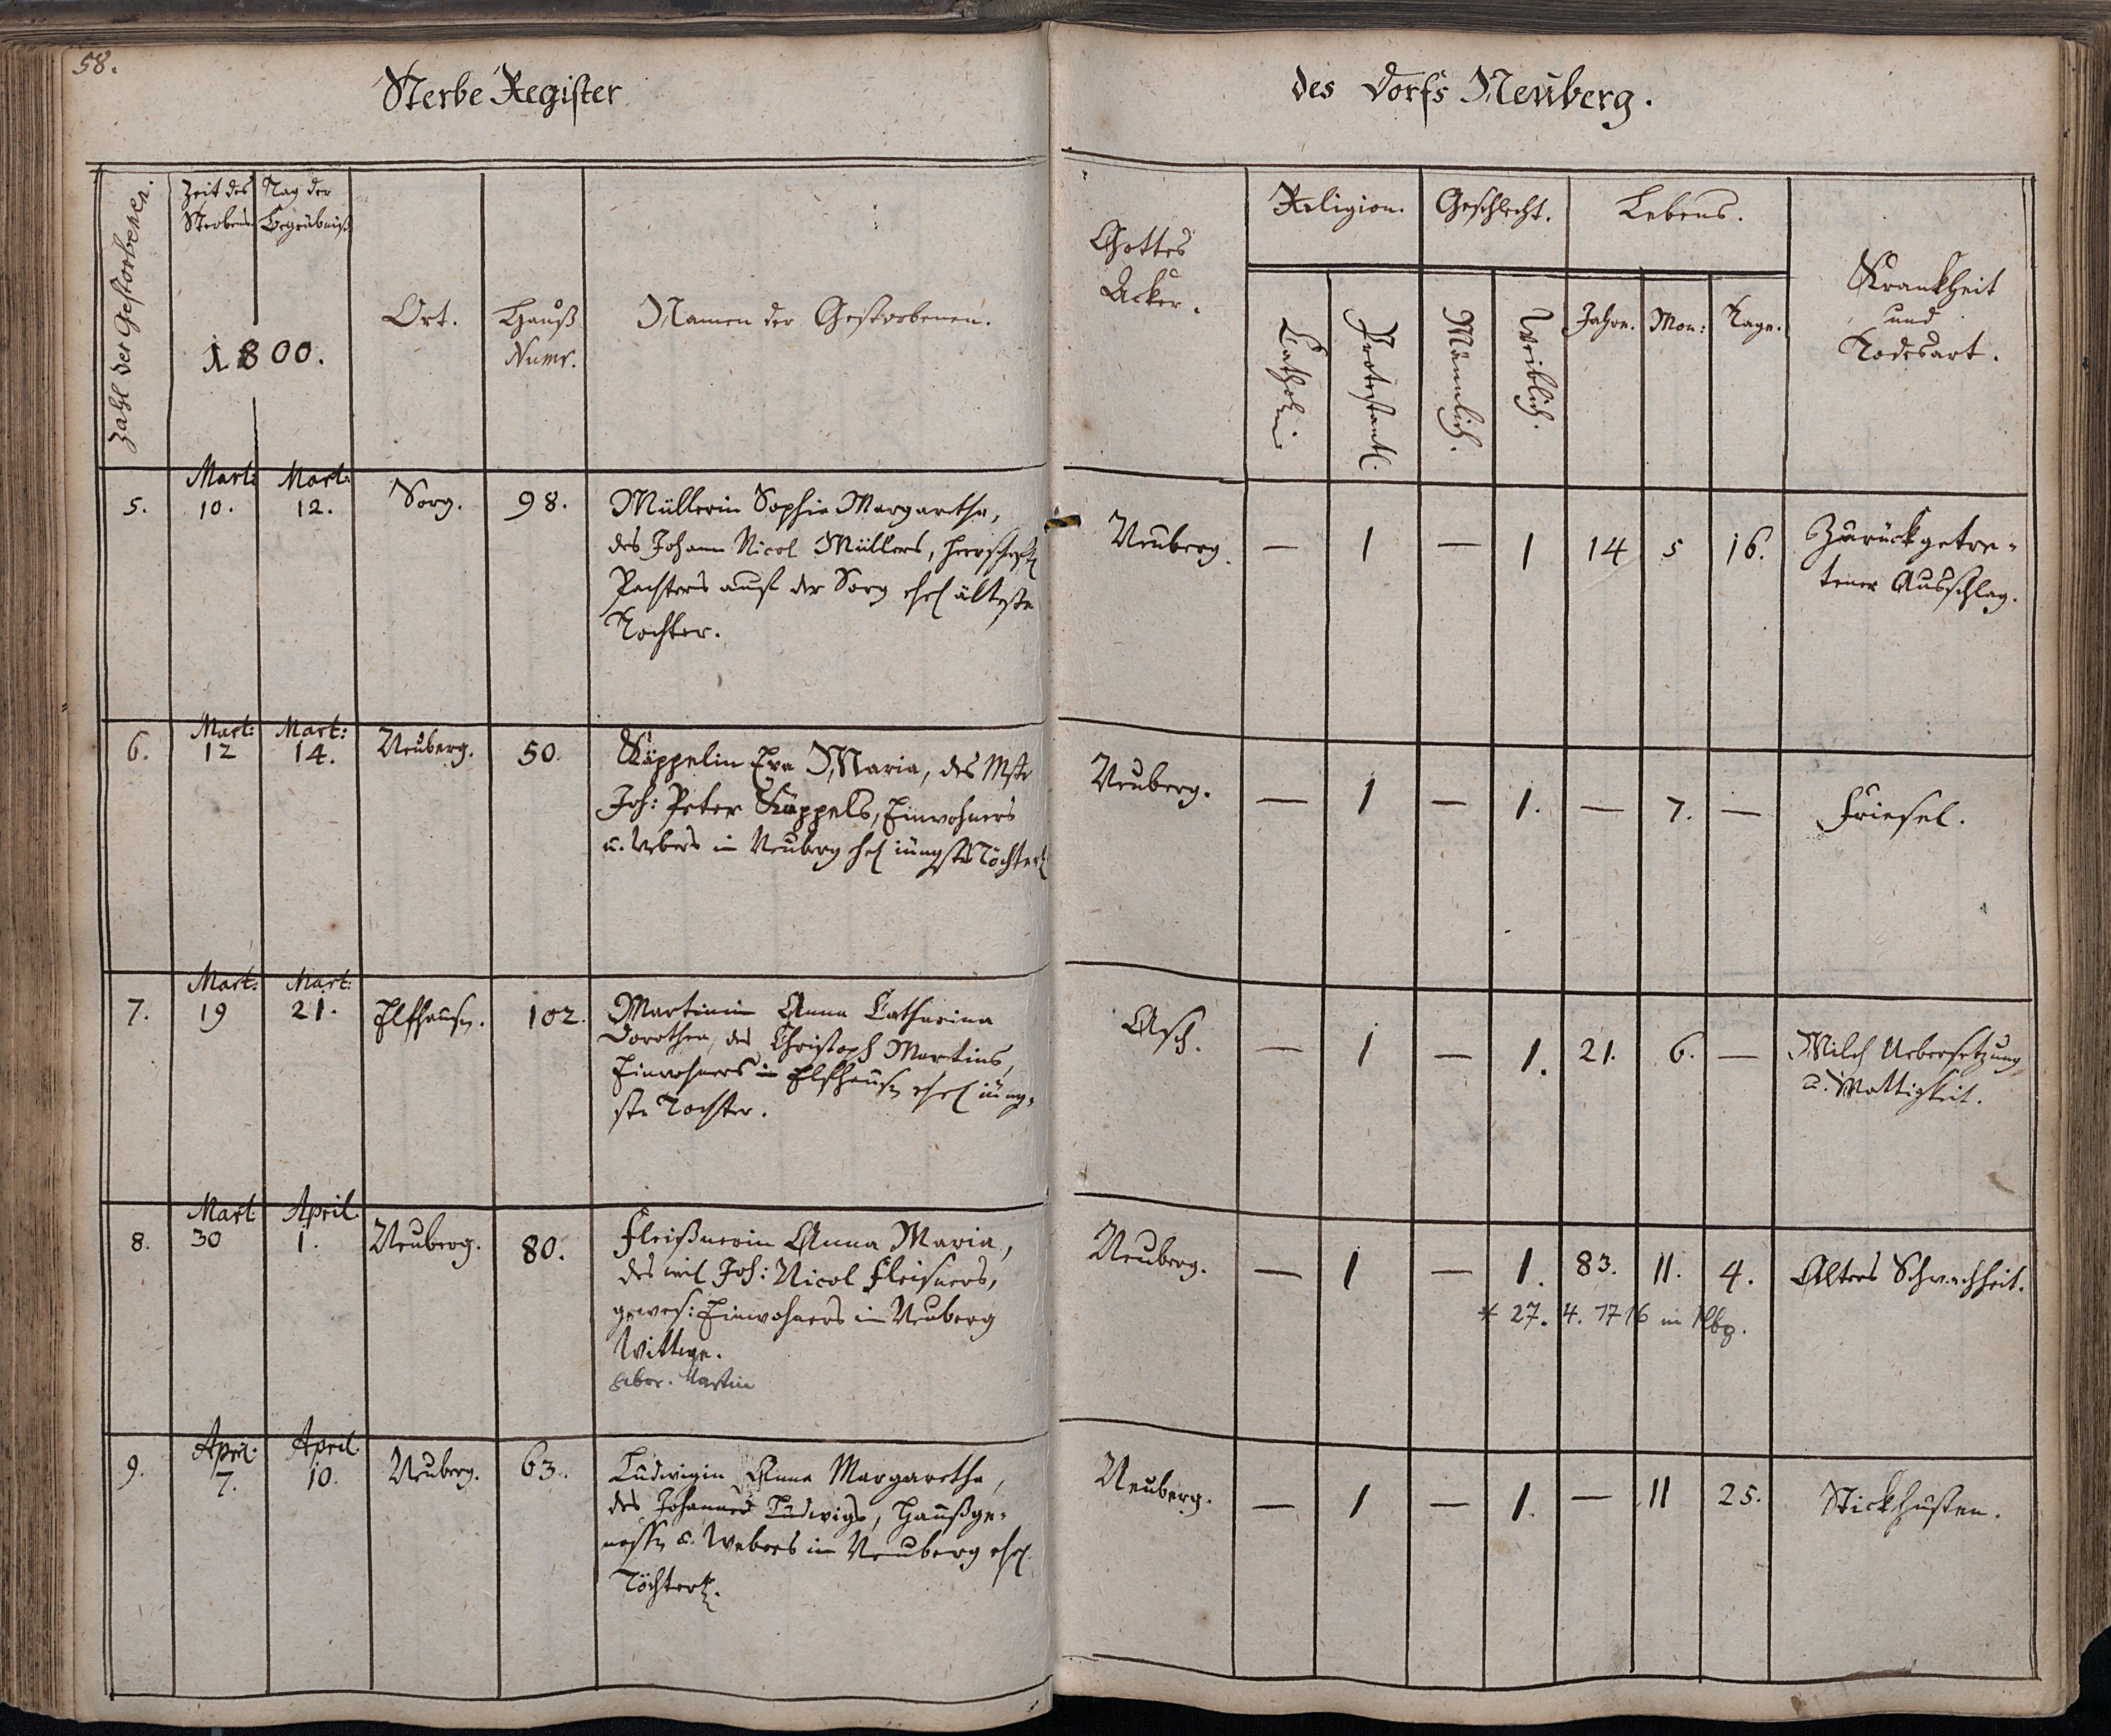 58.
Sterbe Register
des Dorfs Neüberg.
Zahl der Gestorbenen.
Zeit des
Sterbens
Tag der
Begräbniß
1800.
Ort.
Hauß
Numr.
Namen der Gestorbenen.
Gottes
Acker.
Religion.
Catholi
Protestantl.
Geschlecht.
Männlich.
Weiblich.
Lebens.
Jahre.
Mon:
Tage.
Krankheit
und
Todesart.
5.
Mart:
10.
Mart:
12.
Sorg.
98.
Müllerin Sophia Margaretha,
des Johann Nicol Müllers, herrschaftl
Pachters auf der Sorg ehel älteste
Tochter.
Neuberg.
— 1 — 1 14 5 16.
Zurückgetre-
tener Ausschlag.
6.
Mart:
12
Mart:
14.
Neüberg.
50.
Käppelin Eva Maria, des Mstr
Joh: Peter Käppels, Einwohners
u. Webers in Neuberg ehel jüngstes Töchterl
Neuberg.
— 1 — 1. — 7. —
Friesel.
7.
Mart:
19
Mart:
21.
Elfhausn.
102.
Martinin Anna Catharina
Dorothea, des Christoph Martins,
Einwohners in Elfhausn ehel jüng-
ste Tochter.
Asch.
— 1 — 1. 21. 6. —
Milch Uebersetzung
u. Mattigkeit.
8.
Mart
30
April
1.
Neuberg.
80.
Fleißnerin Anna Maria,
des weil Joh: Nicol Fleisners,
gewes: Einwohners in Neuberg
Wittwe.
gebor. Martin
Neuberg.
— 1 — 1. 83. 11. 4.
Alters Schwachheit.
* 27. 4. 1716 in Nbg.
9.
April
7.
April
10.
Neuberg.
63.
Ludwigin Anna Margaretha,
des Johannes Ludwigs, Haußge-
nossn u. Webers in Neuberg ehel.
Töchterl.
Neuberg.
— 1 — 1. — 11 25.
Stickhusten.